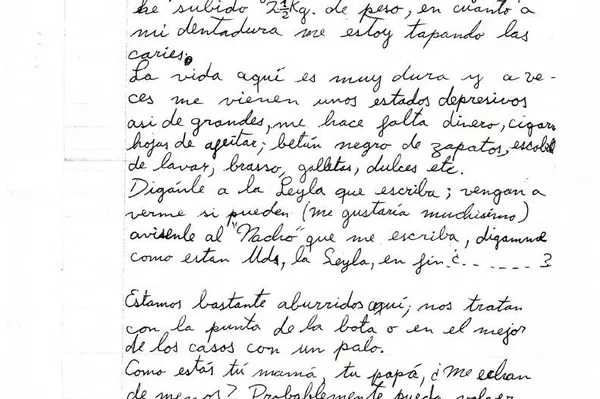 he subido 2½Kg. de peso, en cuanto a
mi dentadura me estoy tapando las
caries.
La vida aquí es muy dura y a ve-
ces me vienen unos estados depresivos
asi de grandes, me hace falta dinero, cigarr
hojas de afeitar; betún negro de zapatos, escobill
de lavar, brasso, galletas, dulces etc.
Digánle a la Leyla que escriba; vengan a
verme si pueden (me gustaría muchisimo)
avisenle al "Nacho" que me escriba, diganme
como estan Uds, la Leyla, en fin ¿.......?
Estamos bastante aburridos aquí; nos tratan
con la punta de la bota o en el mejor
de los casos con un palo.
Como estás tú mamá, tu papá, ¿Me echan
de menos? Probablemente pueda volver